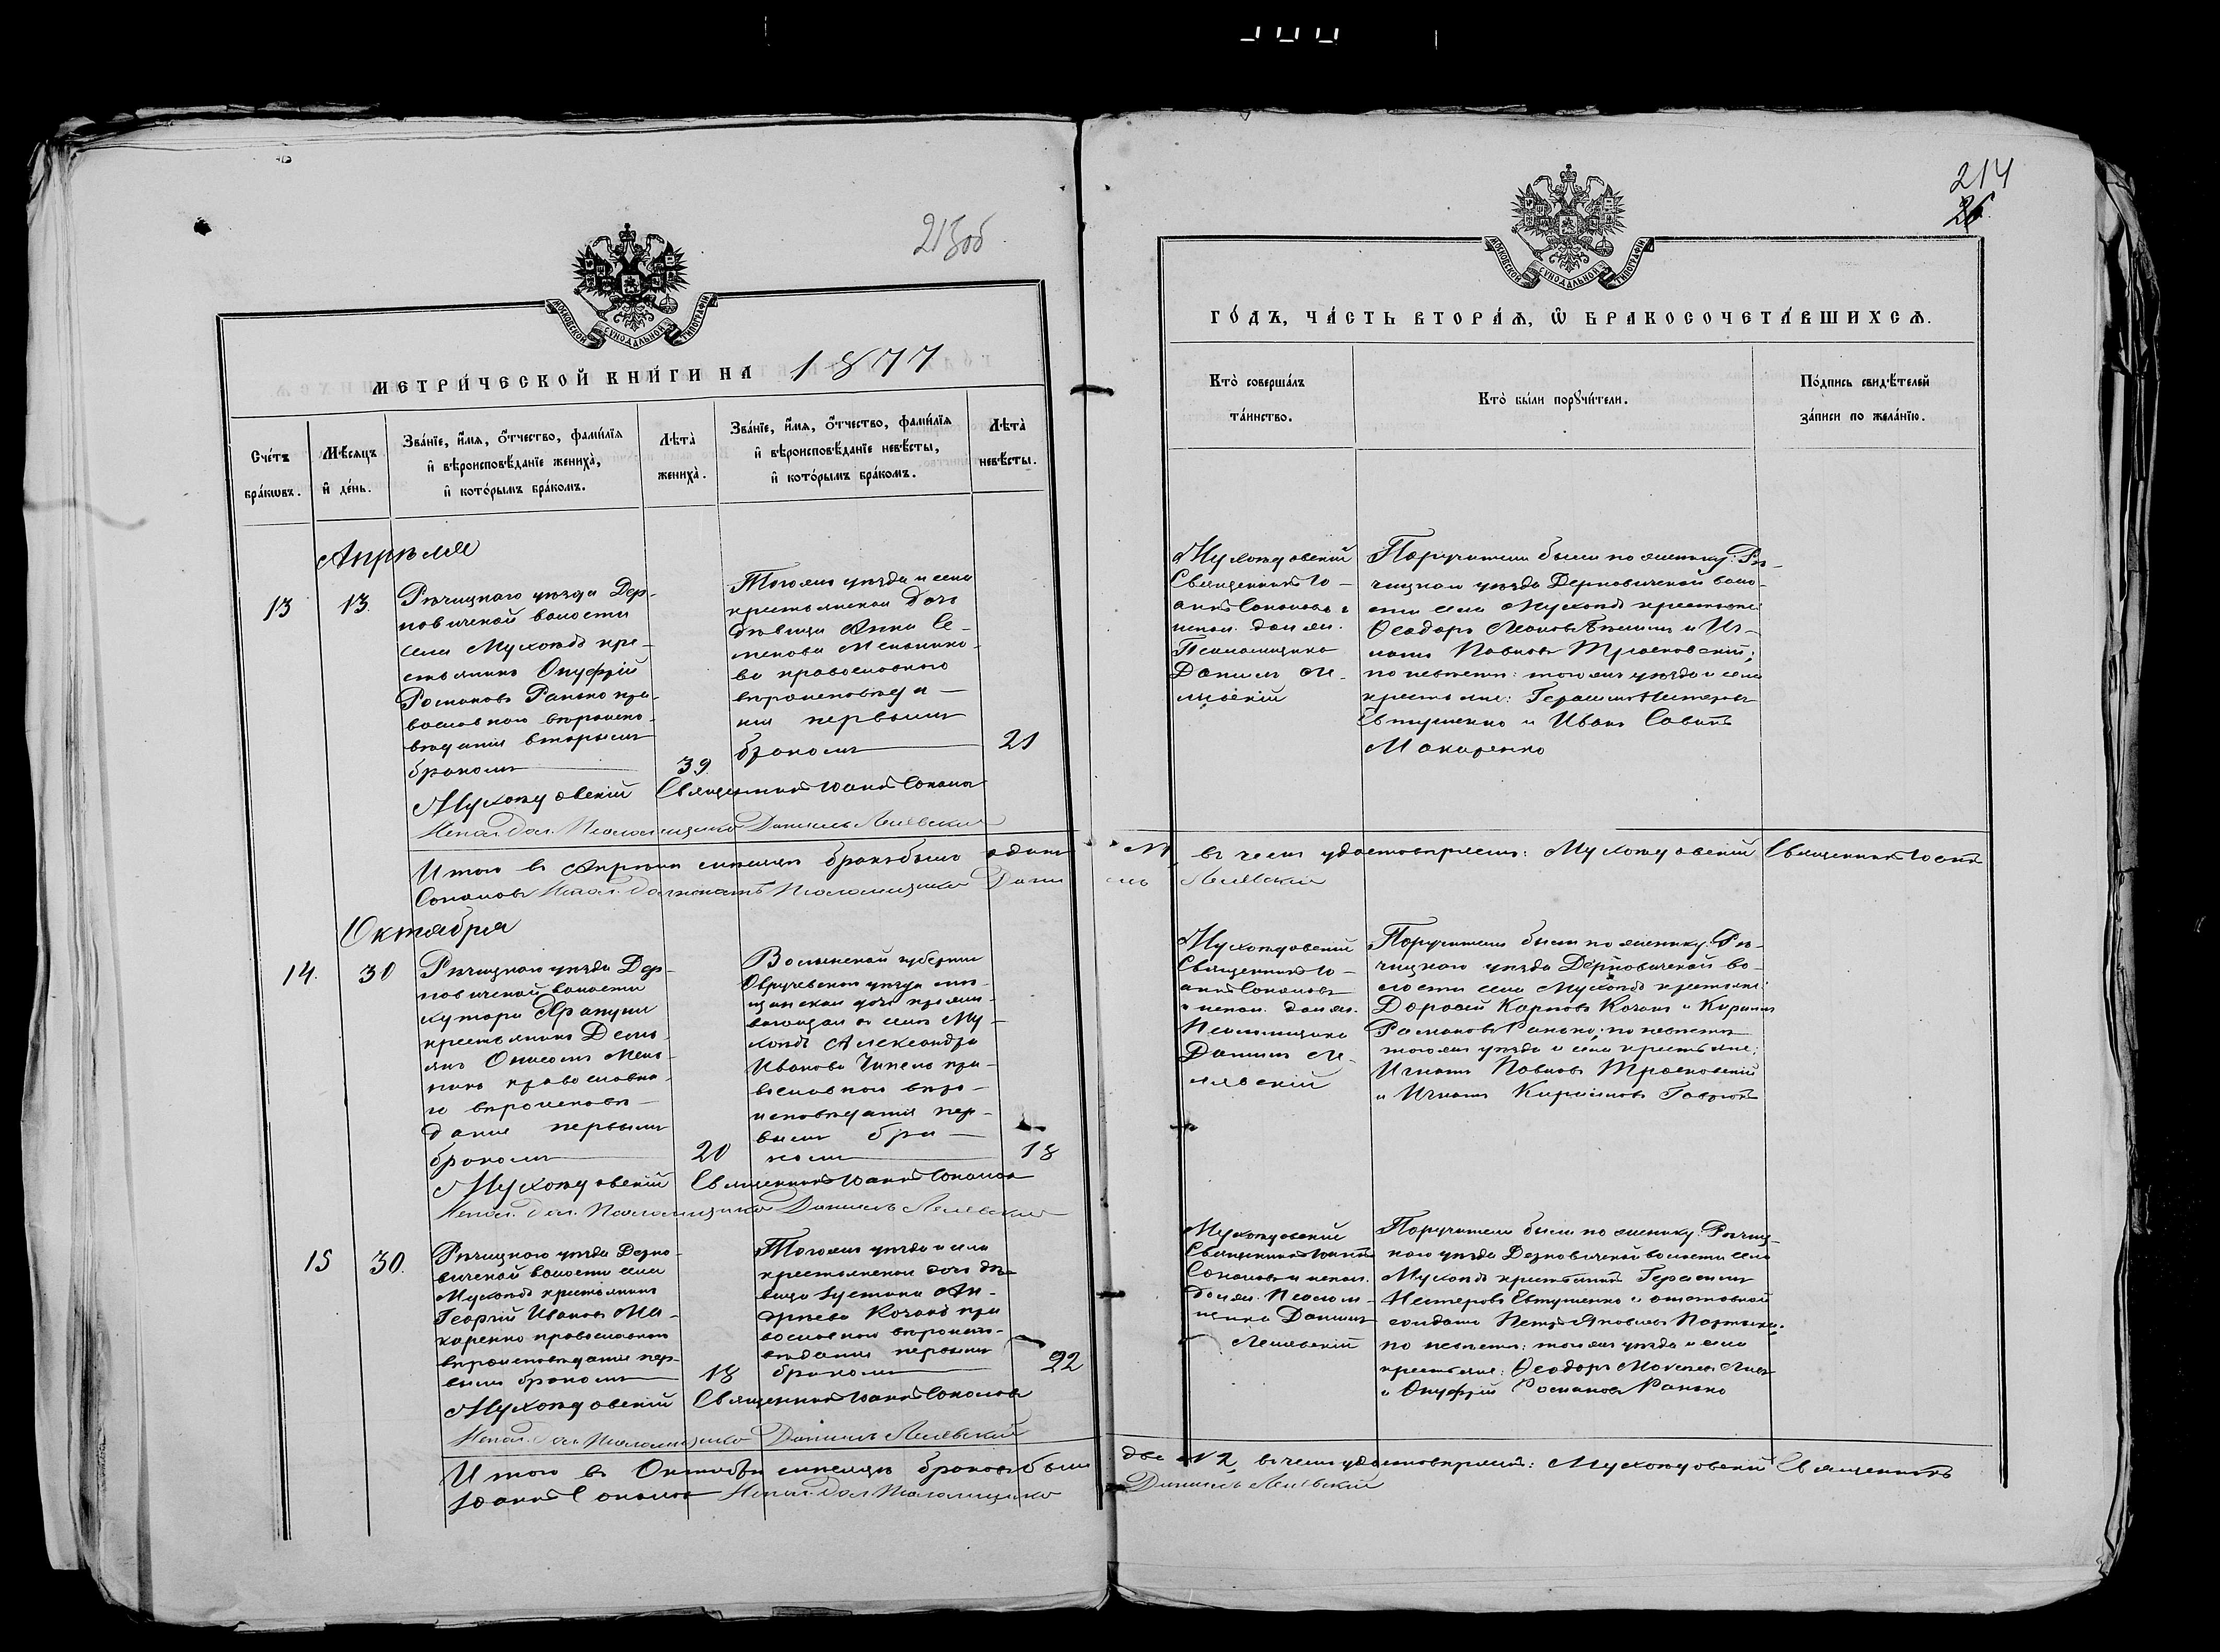 213об
МОСКОВСКОЙ СУНОДАЛЬНОЙ ТИПОГРАФІИ
МЕТРИ́ЧЕСКОЙ КНИ́ГИ НА 1877
Сче́тъ бра́кѡвъ.
Мѣ́сяцъ и҆ де́нь.
Зва́нїе, и҆́мя, ѻ҆́тчество, фами́лїя
и҆ вѣроисповѣ́данїе жениха̀,
и҆ кото́рымъ бра́комъ.
Лѣта̀
жениха̀.
Зва́нїе, и҆́мя, ѻ҆́тчество, фами́лїя
и҆ вѣроисповѣ́данїе невѣ́сты,
и҆ кото́рымъ бра́комъ.
Лѣта̀
невѣ́сты.
Апрѣля
13
13.
Рѣчицкаго уѣзда Дер-
новичской волости
села Мухоѣдъ кре-
стьянинъ Онуфрій
Романовъ Ранько пра-
вославнаго вѣроиспо-
вѣданія вторымъ
бракомъ
39.
Того же уѣзда и села
крестьянская дочь
дѣвица Анна Се-
менова Мельнико-
ва православнаго
вѣроисповѣда-
нія первымъ
бракомъ
21
Мухоѣдовскій Священникъ Іоаннъ Соколовъ
Испол. дол. Псаломщика Даніилъ Лелявскій
Итого въ Апрѣлѣ мѣсяцѣ бракъ былъ одинъ
Соколовъ Испол. должность Псаломщика Дани
Октября
14.
30
Рѣчицкаго уѣзда Дер-
новичской волости
хутора
крестьянинъ Демь-
янъ Онисимъ
православна-
го вѣроисповѣ-
данія первымъ
бракомъ
20
Волынской губерніи
Овручевскаго уѣзда мѣ-
щанская дочь прожи-
вающая въ селѣ Му-
хоѣдъ Александра
Иванова пра-
вославнаго вѣро-
исповѣданія пер-
вымъ бра-
комъ
18
Мухоѣдовскій Священникъ Іоаннъ Соколовъ
Испол. дол. Псаломщика Даніилъ Лелявскій
15
30.
Рѣчицкаго уѣзда Дерно-
вичской волости села
Мухоѣдъ крестьянинъ
Георгій Ивановъ Ма-
каренко православнаго
вѣроисповѣданія пер-
вымъ бракомъ
18
Того же уѣзда и села
крестьянская дочь дѣ-
вица Іустина Ан-
дреева пра
вославнаго вѣроиспо-
вѣданія первымъ
бракомъ
22
Мухоѣдовскій Священникъ Іоаннъ Соколовъ
Испол. дол. Псаломщика Даніилъ Лелявскій
Итого въ Октябрѣ мѣсяцѣ браковъ было
Іоаннъ Соколовъ Испол. дол. Псаломщика
214
26.
МОСКОВСКОЙ СУНОДАЛЬНОЙ ТИПОГРАФІИ
ГО́ДЪ, ЧА́СТЬ ВТОРА́Ѧ, Ѽ БРАКОСОЧЕТА́ВШИХСѦ.
Кто̀ соверша́лъ
та́инство.
Кто̀ бы́ли порꙋчи́тели.
По́дпись свидѣ́телей
за́писи по жела́нїю.
Мухоѣдовскій
Священникъ Іо-
аннъ Соколовъ и
испол. долж.
Псаломщика
Даніилъ Ле-
лявскій
Поручители были по жениху: Рѣ-
чицкаго уѣзда Дерновичской воло-
сти села Мухоѣдъ крестьяне:
Ѳеодоръ и Иг-
натъ Павловъ Трасковскій;
по невѣстѣ: того же уѣзда и села
крестьяне: Герасимъ Нестеровъ
Евтушенко и Иванъ Савинъ
Макаренко
№ 1 въ чемъ удостовѣряемъ: Мухоѣдовскій Священникъ Іоаннъ
лъ Лелявскій
Мухоѣдовскій
Священникъ Іо-
аннъ Соколовъ
и испол. долж.
Псаломщика
Даніилъ Ле-
лявскій
Поручители были по жениху: Рѣ-
чицкаго уѣзда Дерновичской во-
лости села Мухоѣдъ крестьяне:
Дорофей Карповъ и Кирилъ
Романовъ Ранько; по невѣстѣ
того же уѣзда и села крестьяне:
Игнатъ Павловъ Трасковскій
и Игнатъ Кириловъ
Мухоѣдовскій
Священникъ Іоаннъ
Соколовъ и испол.
долж. Псалом-
щика Даніилъ
Лелявскій
Поручители были по жениху: Рѣчиц-
каго уѣзда Дерновичской волости села
Мухоѣдъ крестьянинъ Герасимъ
Нестеровъ Евтушенко и отставной
солдатъ Петръ Яковлевъ
по невѣстѣ: того же уѣзда и села
крестьяне: Ѳеодоръ
и Онуфрій Романовъ Ранько
два № 2, въ чемъ удостовѣряемъ: Мухоѣдовскій Священникъ
Даніилъ Лелявскій